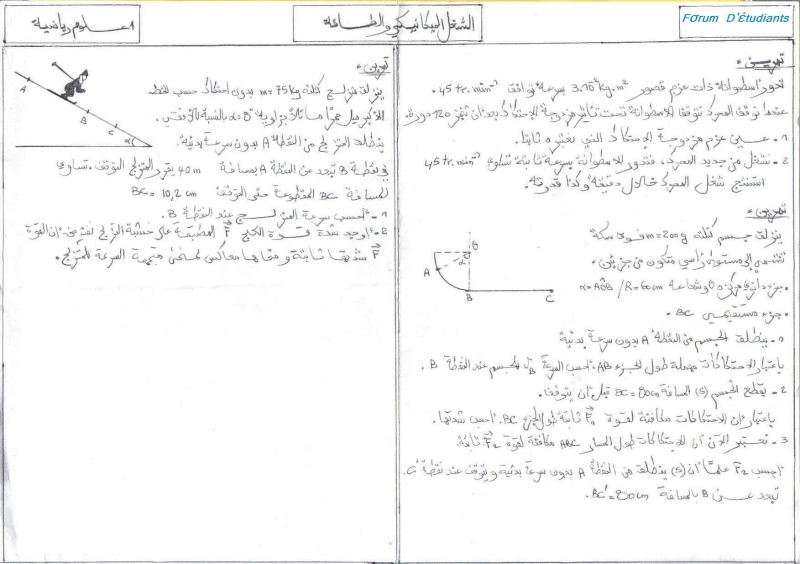 Forum D'étudiants
الشغل الميكانيكي والطاقة
علوم رياضية 1
تمرين :
تدور اسطوانة ذات عزم قصور 3.10 kg.m² بسرعة توافق 45 tr.min⁻¹.
عندما توقف المحرك تتوقف الاسطوانة تحت تأثير مزدوجة الاحتكاك بعد أن تنجز 120 دورة.
1- عين عزم مزدوجة الاحتكاك الذي نعتبره ثابتا.
2- نشغل من جديد المحرك، فتدور الاسطوانة بسرعة ثابتة تساوي 45 tr.min⁻¹
استنتج شغل المحرك خلال دقيقة وكذا قدرته.
تمرين :
ينزلق جسم كتلته m=200g فوق سكة
تنتمي إلى مستوى رأسي متكون من جزئين :
• جزء دائري مركزه O وشعاعه R=60cm / α=AÔB
• جزء مستقيمي BC.
1- ينطلق الجسم من النقطة A بدون سرعة بدئية
باعتبار الاحتكاكات مهملة طول الجزء AB، احسب السرعة للجسم عند النقطة B.
2- يقطع الجسم (S) المسافة BC=80cm قبل أن يتوقف.
باعتبار أن الاحتكاكات مكافئة لقوة F₁ ثابتة طول الجزء BC. احسب شدتها.
3- نعتبر الآن أن الاحتكاكات طول المسار ABC مكافئة لقوة F₂ ثابتة.
احسب F₂ علما أن (S) ينطلق من النقطة A بدون سرعة بدئية ويتوقف عند نقطة C'
تبعد عن B بالمسافة BC'=80cm.
O
α
A
B
C
تمرين :
ينزلق متزلج كتلته m=75kg بدون احتكاك حسب الخط
الأكبر ميل ممرا مائلا بزاوية α=8° بالنسبة للأفقي.
ينطلق المتزلج من النقطة A بدون سرعة بدئية.
في نقطة B تبعد عن النقطة A بمسافة 40m يقرر المتزلج التوقف. تساوي
المسافة BC المقطوعة حتى التوقف BC=10,2cm
1- احسب سرعة المتزلج عند النقطة B.
2- أوجد شدة قوة الكبح F المطبقة على خشبتي التزلج نفترض أن القوة
F شدتها ثابتة ومنحاها معاكس لمنحى متجهة السرعة للمتزلج.
A
B
C
α